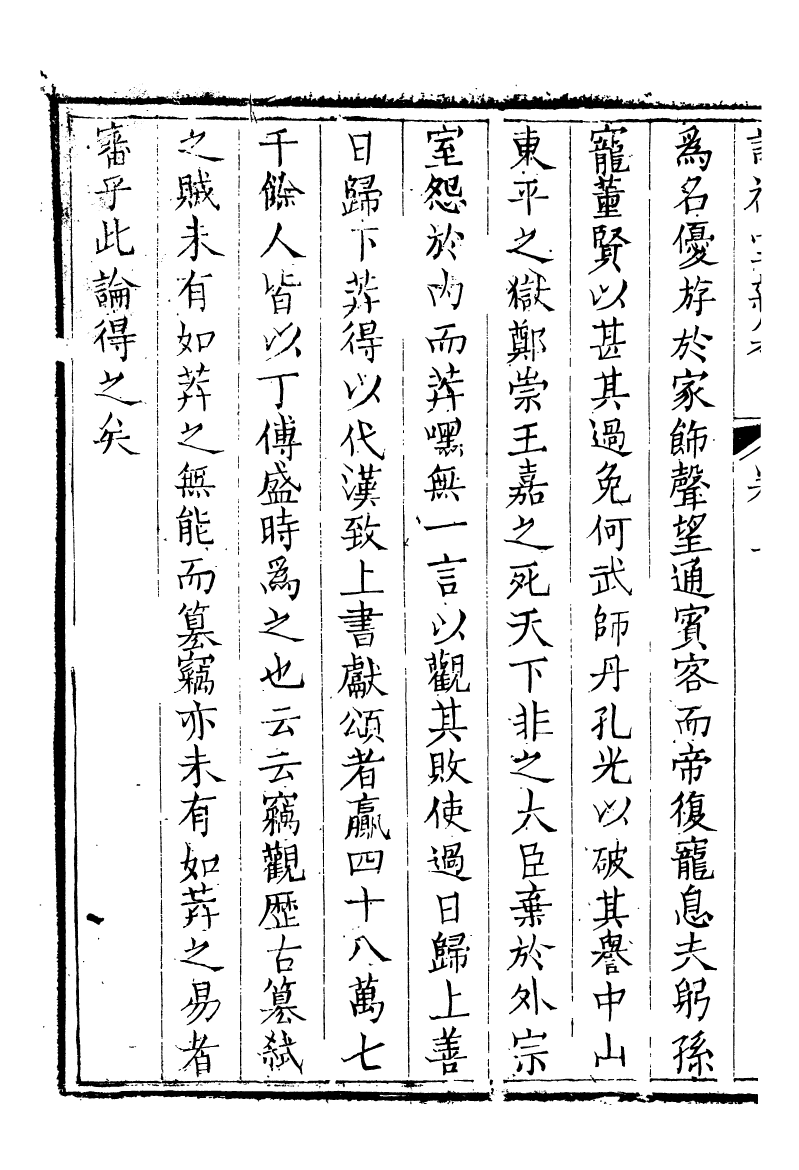 爲名優游於家飾聲望通賓客而帝復寵息夫躬孫
寵董賢以甚其過免何武師丹孔光以破其譽中山
東平之獄鄭崇王嘉之死天下非之大臣棄於外宗
室怨於內而莽嘿無一言以觀其敗使過日歸上善
日歸下莽得以代漢致上書獻頌者贏四十八萬七
千餘人皆以丁傅盛時爲之也云云竊觀歷古篡弒
之賊未有如莽之無能而篡竊亦未有如莽之易者
審乎此論得之矣